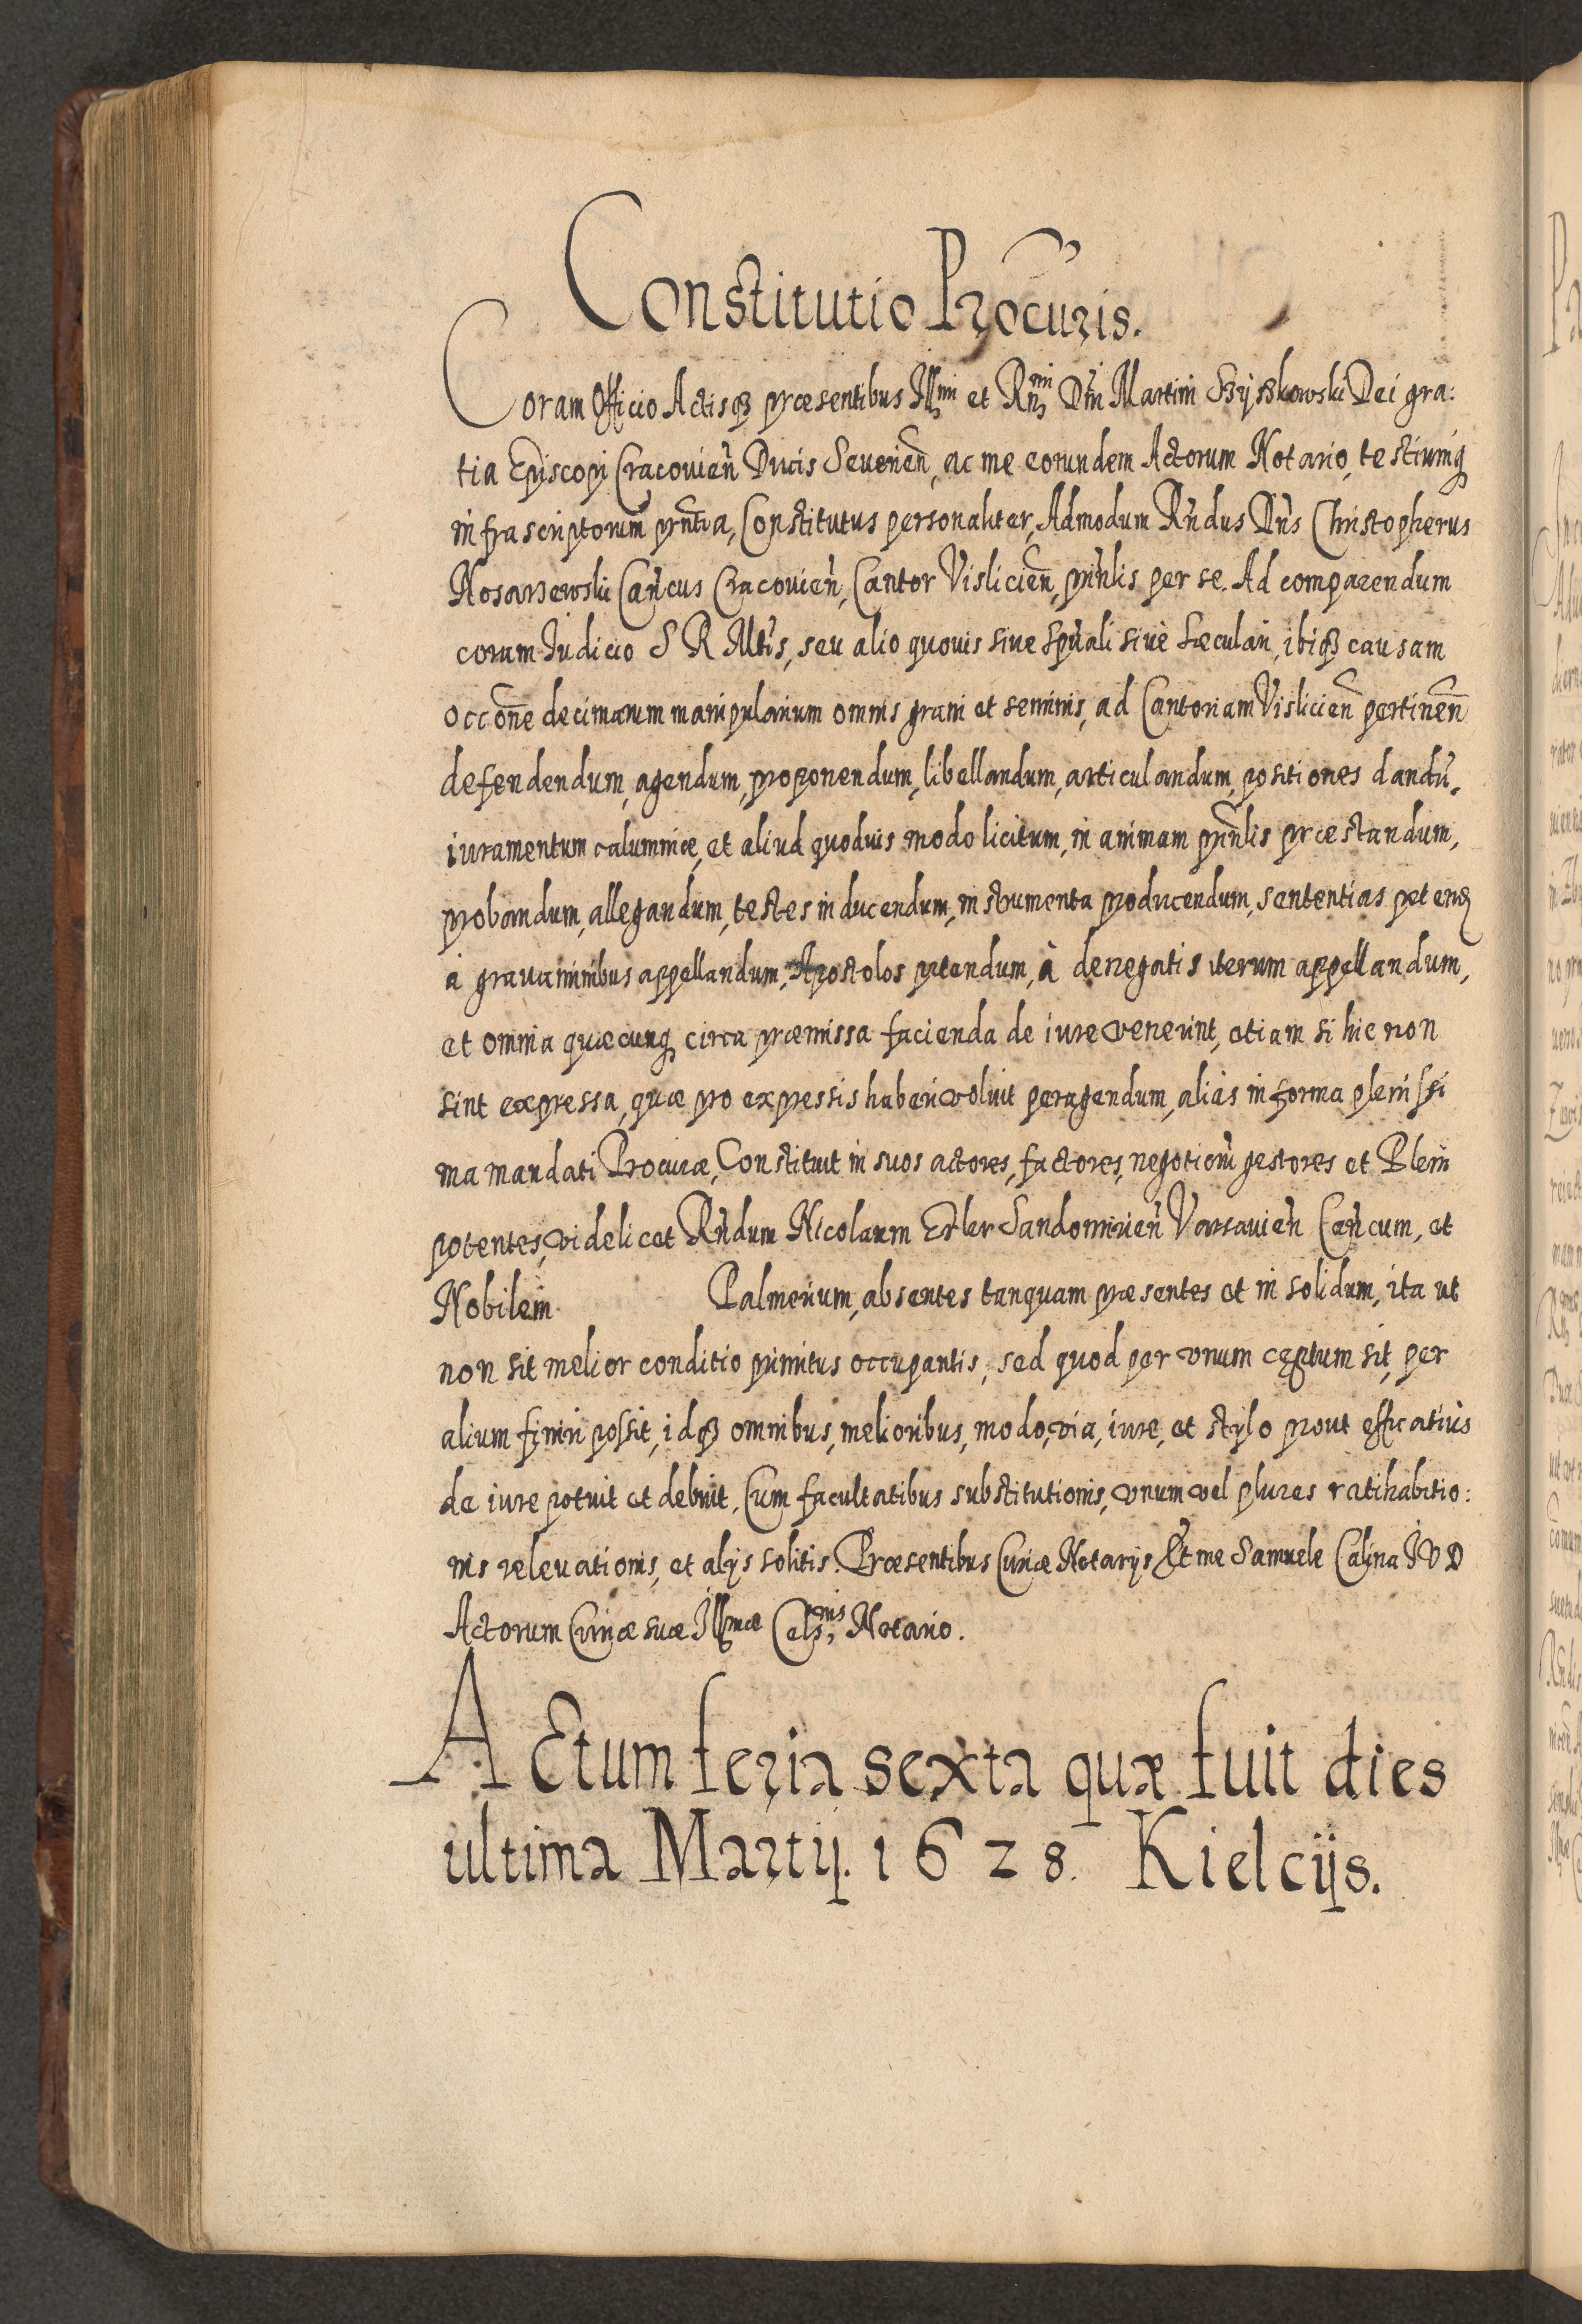 Constitutio Procuris.
Coram Officio Actisq₃ præsentibus Illmi et Rmi Dni Martini Szyszkowski Dei gra:
tia Episcopi Cracovien̄ Ducis Severien̄, ac me eorundem Actorum Notario, testiumq₃
infrascriptorum pn̄tia, Constitutus personaliter, Admodum Rn̄dus Dn̄s Christopherus
Can̄cus Cracovien̄, Cantor Vislicien̄, prin̄lis per se. Ad comparendum
coram Iudicio S R Mtis, seu alio quovis sive spūali sivè sæculari, ibiq₃ causam
occōne decimarum manipularium omnis grani et seminis, ad Cantoriam Vislicien̄ pertinen̄
defendendum, agendum, proponendum, libellandum, articulandum, positiones dandū,
iuramentum calumniæ, et aliud quodvis modo licitum, in animam prin̄lis præstandum,
probandum, allegandum, testes inducendum, instrumenta producendum, sententias peten₃
à gravaminibus appellandum, Apostolos petendum, à denegatis iterum appellandum,
et omnia quæcunq₃ circa præmissa facienda de iure venerint, etiam si hic non
sint expressa, quæ pro expressis haberi voluit peragendum, aliàs in forma plenissi
ma mandati Procuræ, Constituit in suos actores, factores, negotiorū gestores et Pleni
potentes, videlicet Rn̄dum Nicolaum Erler Sandomirien̄ Varsavien̄ Can̄cum, et
Nobilem Palmerium, absentes tanquam præsentes et in solidum, ita ut
non sit melior conditio primitus occupantis, sed quod per vnum cęptum sit, per
alium finiri possit, idq₃ omnibus, melioribus, modo, via, iure, et stylo prout efficatiùs
de iure potuit et debuit, Cum facultatibus substitutionis, vnum vel plures ratihabitio:
nis relevationis, et alijs solitis. Præsentibus Curiæ Notarijs Et me Samuele Calina I V D
Actorum Curiæ suæ Illmæ Celsnis Notario.
ACtum feria sexta quæ fuit dies
ultima Martij. 1628. Kielcijs.